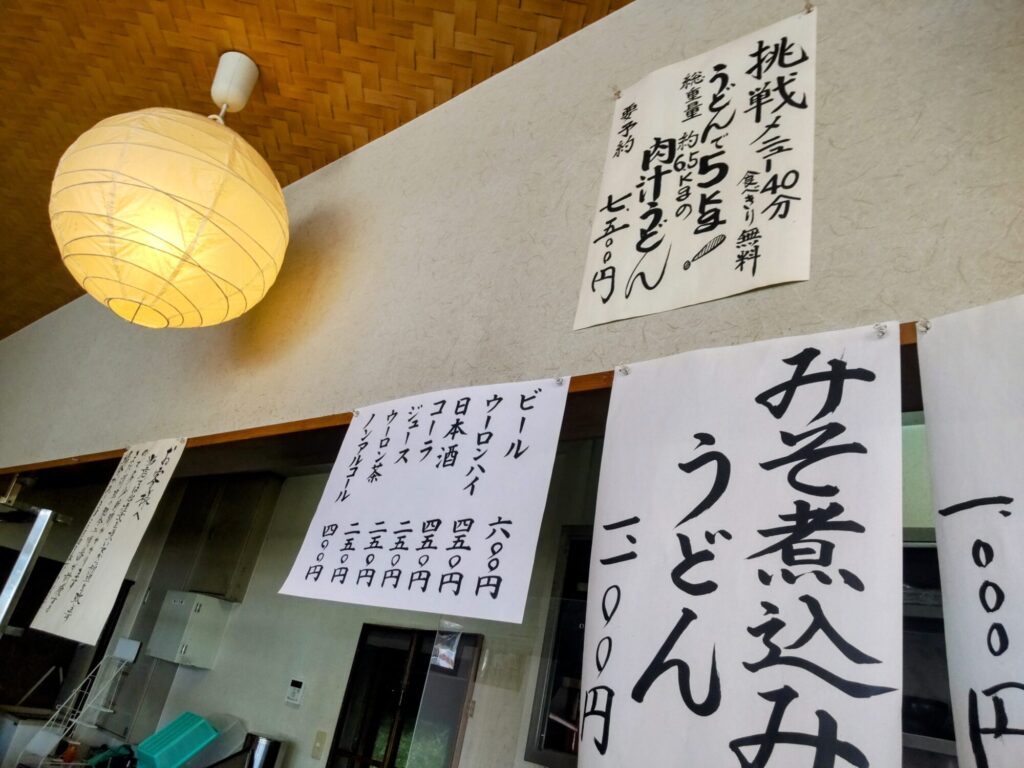 挑戦メニュー40分
食べきり無料
うどんで5kg!
総重量 約6.5kgの
肉汁うどん
要予約
七、五〇〇円
一、〇〇〇円
みそ煮込み
うどん
一、二〇〇円
ビール 六〇〇円
ウーロンハイ 四五〇円
日本酒 四五〇円
コーラ 二五〇円
ジュース 二五〇円
ウーロン茶 二五〇円
ノンアルコール 四〇〇円
お客様へ